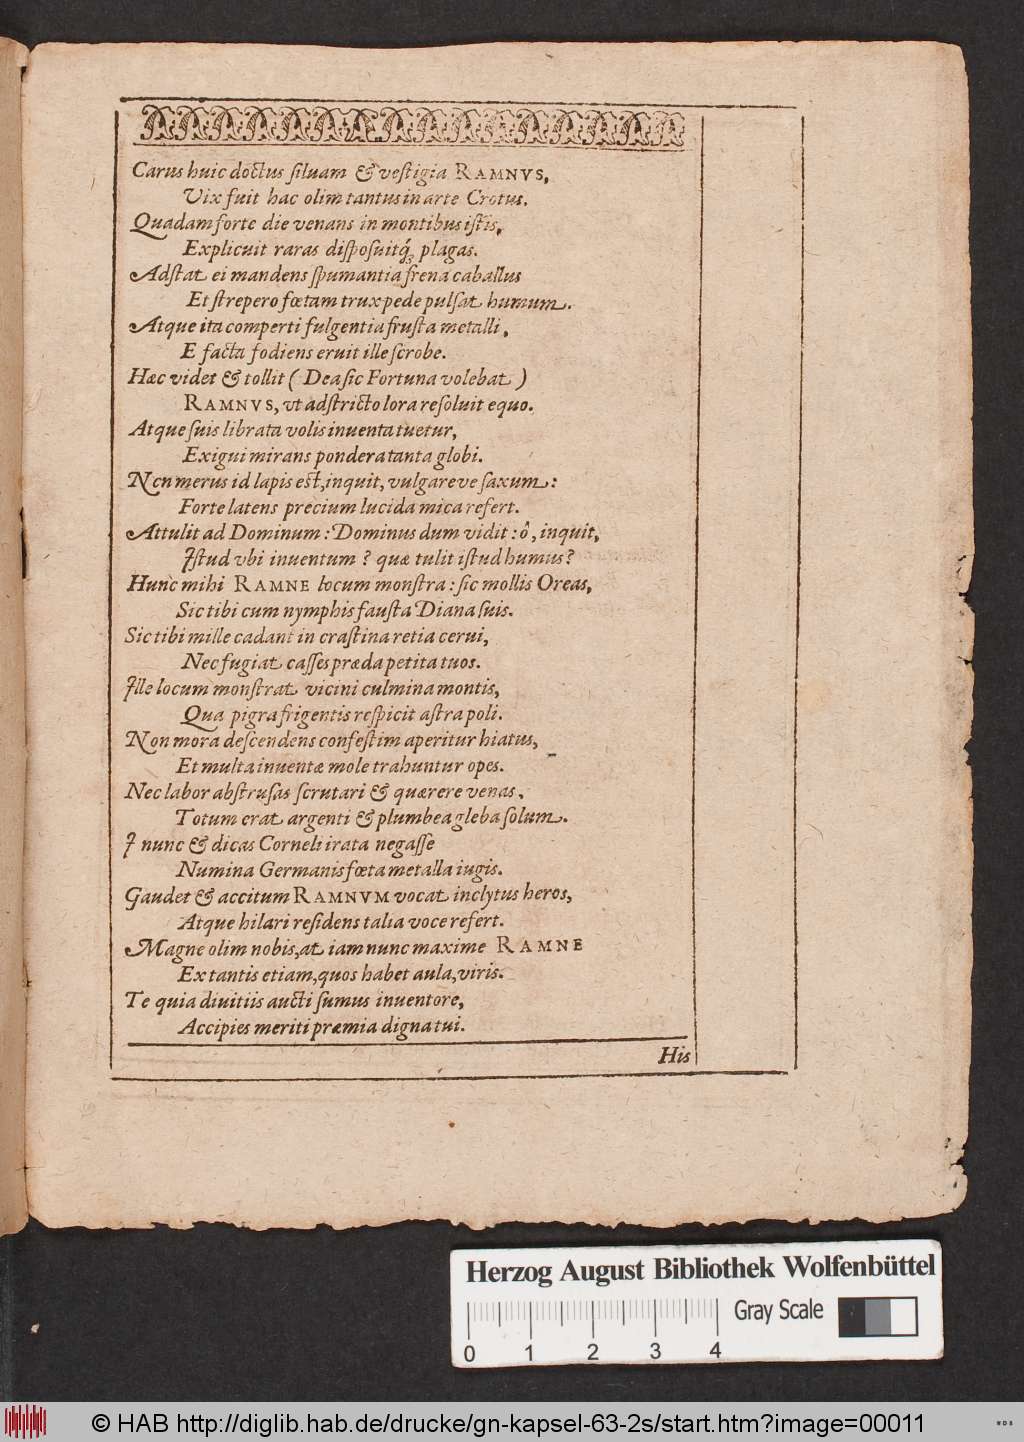 Carus huic doctus ſiluam & veſtigia RAMNVS,
Vix fuit hac olim tantus in arte Crotus.
Quadam forte die venans in montibus iſtis,
Explicuit raras diſpoſuitq́; plagas.
Adſtat ei mandens ſpumantia frena caballus
Et ſtrepero fœtam trux pede pulſat humum.
Atque ita comperti fulgentia fruſta metalli,
E facta fodiens eruit ille ſcrobe.
Hæc videt & tollit ( Dea ſic Fortuna volebat )
RAMNVS, vt adſtricto lora reſoluit equo.
Atque ſuis librata volis inuenta tuetur,
Exigui mirans pondera tanta globi.
Non merus id lapis eſt, inquit, vulgareve ſaxum:
Forte latens precium lucida mica refert.
Attulit ad Dominum: Dominus dum vidit: ô, inquit,
Iſtud vbi inuentum ? quæ tulit iſtud humus?
Hunc mihi RAMNE locum monſtra: ſic mollis Oreas,
Sic tibi cum nymphis fauſta Diana ſuis.
Sic tibi mille cadant in craſtina retia cerui,
Nec fugiat caſſes præda petita tuos.
Ille locum monſtrat vicini culmina montis,
Qua pigra frigentis reſpicit aſtra poli.
Non mora deſcendens confeſtim aperitur hiatus,
Et multa inuentæ mole trahuntur opes.
Nec labor abſtruſas ſcrutari & quærere venas,
Totum erat argenti & plumbea gleba ſolum.
I nunc & dicas Corneli irata negaſſe
Numina Germanis fœta metalla iugis.
Gaudet & accitum RAMNVM vocat inclytus heros,
Atque hilari reſidens talia voce refert.
Magne olim nobis, at iam nunc maxime RAMNE
Ex tantis etiam, quos habet aula, viris.
Te quia diuitiis aucti ſumus inuentore,
Accipies meriti præmia digna tui.
His
Herzog August Bibliothek Wolfenbüttel
Gray Scale
0 1 2 3 4
© HAB http://diglib.hab.de/drucke/gn-kapsel-63-2s/start.htm?image=00011
WDB